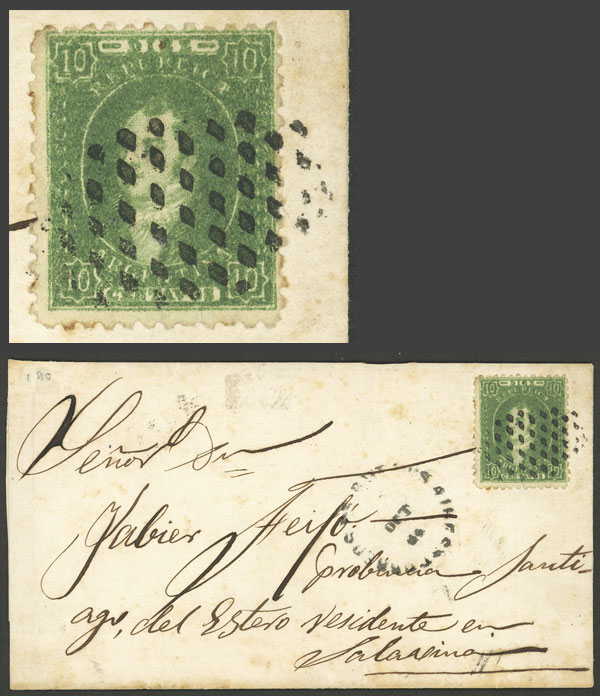 10 10
REPUBLICA
10 10
CENTAVOS
Señor Dn
Jabier Feijo
OCT
probincia Santi-
ago, del Estero residente en
Salavina
10 10
10